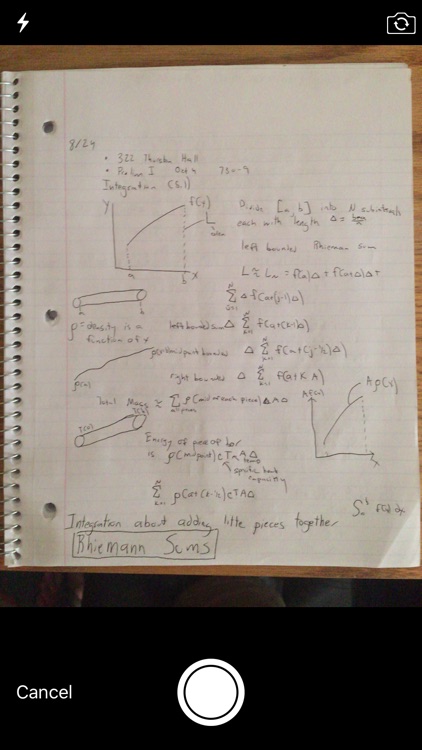 8/24
• 322 Thurston Hall
• Prelim I Oct 4 730-9
Integration (5.1)
Y
f(x)
a
b
X
Divide [a, b] into N subintervals
each with length Δ =
left bounded Rhiemann Sum
L ≈ Ln = f(a)Δ + f(a+Δ)Δ +
Δ f(a+(j-1)Δ)
a
b
ρ = density is a
function of x
left bound sum Δ Σ f(a+(k-1)Δ)
midpoint bounded Δ Σ f(a+(j-½)Δ)
ρ(x)
right bounded Δ Σ f(a+kΔ)
Total Mass ≈ Σ ρ(mid of each piece) Δ A
T(x)
Aρ(x)
X
Energy of piece of bar
is ρ(midpoint) c T A Δ
specific heat
capacity
Σ ρ(a+(k-½) c T A Δ
∫ f(x) dx
Integration about adding little pieces together
Rhiemann Sums
Cancel